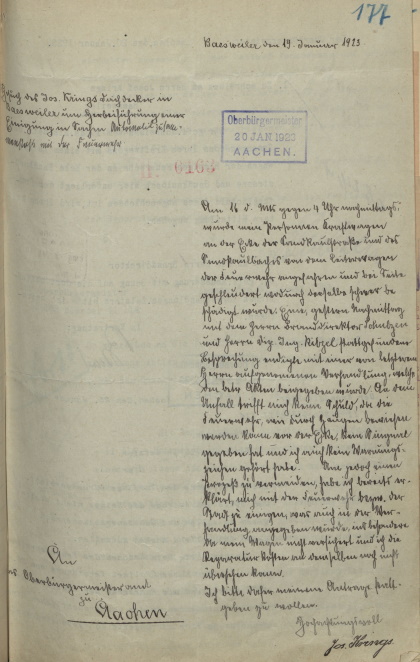 177
Baesweiler den 19. Januar 1923
Gesuch des Jos. Krings Dachdecker in
Baesweiler um Herbeiführung einer
Einigung in Sachen Automobilzusam-
menstoß mit der Feuerwehr
Oberbürgermeister
20 JAN 1923
AACHEN.
6163
Am 16 d. Mts gegen 4 Uhr nachmittags,
wurde mein Personen Kraftwagen
an der Ecke der Sandkaulstraße und des
Sandkaulbachs von dem Leiterwagen
der Feuerwehr angefahren und bei Seite
geschleudert wodurch derselbe schwer be
schädigt wurde. Eine, gestern Nachmittag
mit dem Herrn Branddirektor Scholzen
und Herrn Dip. Ing. stattgefundene
Besprechung endigte mit einer von letzterem
Herrn aufgenommenen Verhandlung, welche
den betr Akten beigegeben wurde. An dem
Unfall trifft mich keine Schuld, da die
Feuerwehr, wie durch Zeugen bewiesen
werden kann vor der Ecke kein Signal
gegeben hat und ich auch kein Warnungs-
zeichen gehört habe. Um jedoch einen
Prozeß zu vermeiden, habe ich bereits er-
klärt, mich mit der Feuerwehr bezw. der
Stadt zu einigen, was auch in der Ver-
handlung angegeben wurde, insbesondere
da mein Wagen nicht versichert und ich die
Reparaturkosten an demselben noch nicht
übersehen kann.
Ich bitte daher meinem Antrage statt-
geben zu wollen.
Hochachtungsvoll
Jos. Krings.
An
das Oberbürgermeisteramt
zu
Aachen